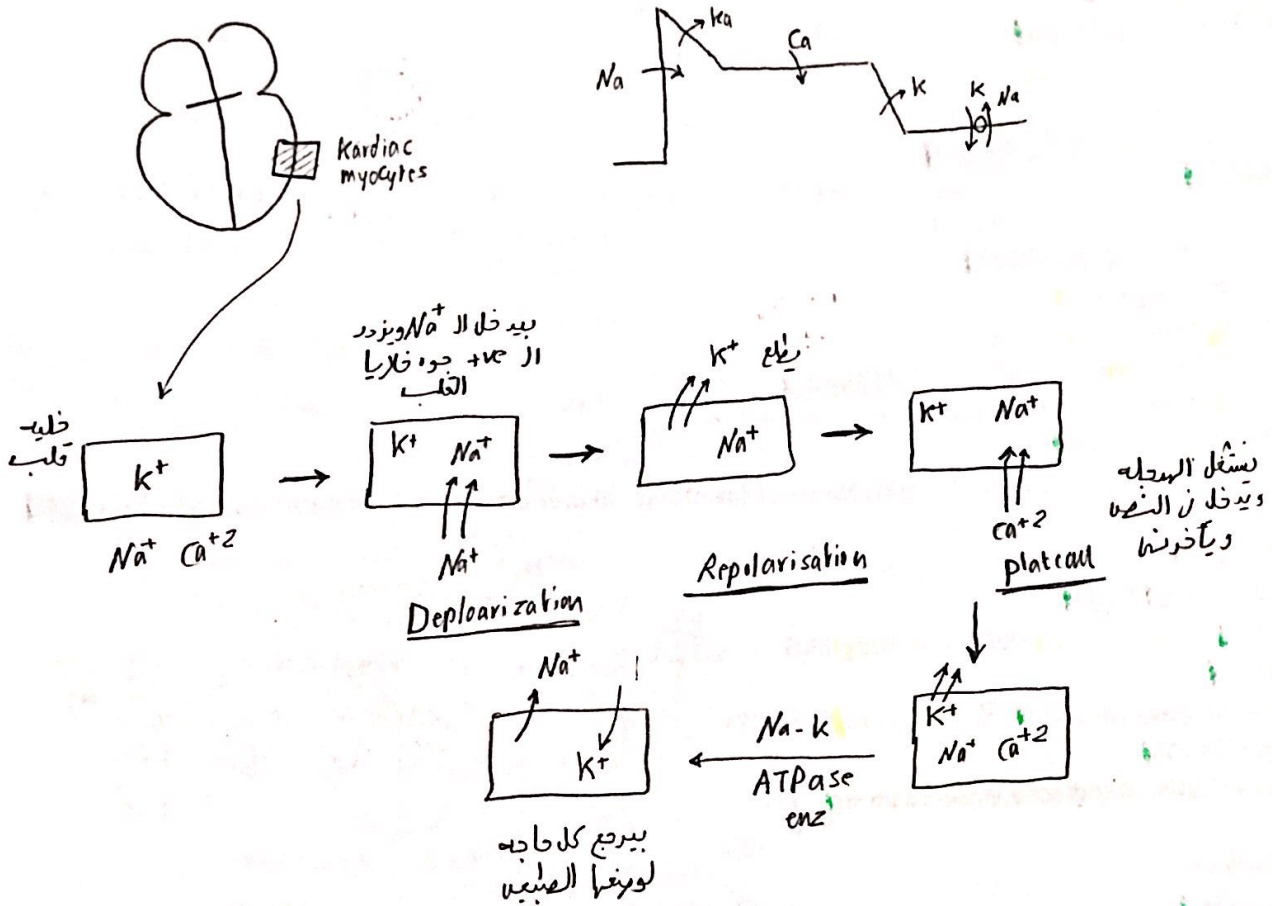 Kardiac
myocytes
Na
ka
Ca
K
K Na
خليه
قلب
K+
Na+ Ca+2
بيدخل ال Na+ ويزدد
ال +ve جوه خلايا
القلب
K+ Na+
Na+
Deploarization
K+ يطلع
Na+
Repolarisation
K+ Na+
Ca+2
plateau
ويدخل
K+
Na+ Ca+2
Na-K
ATPase
enz
Na+
K+
بيرجع كل حاجه
لوضعها